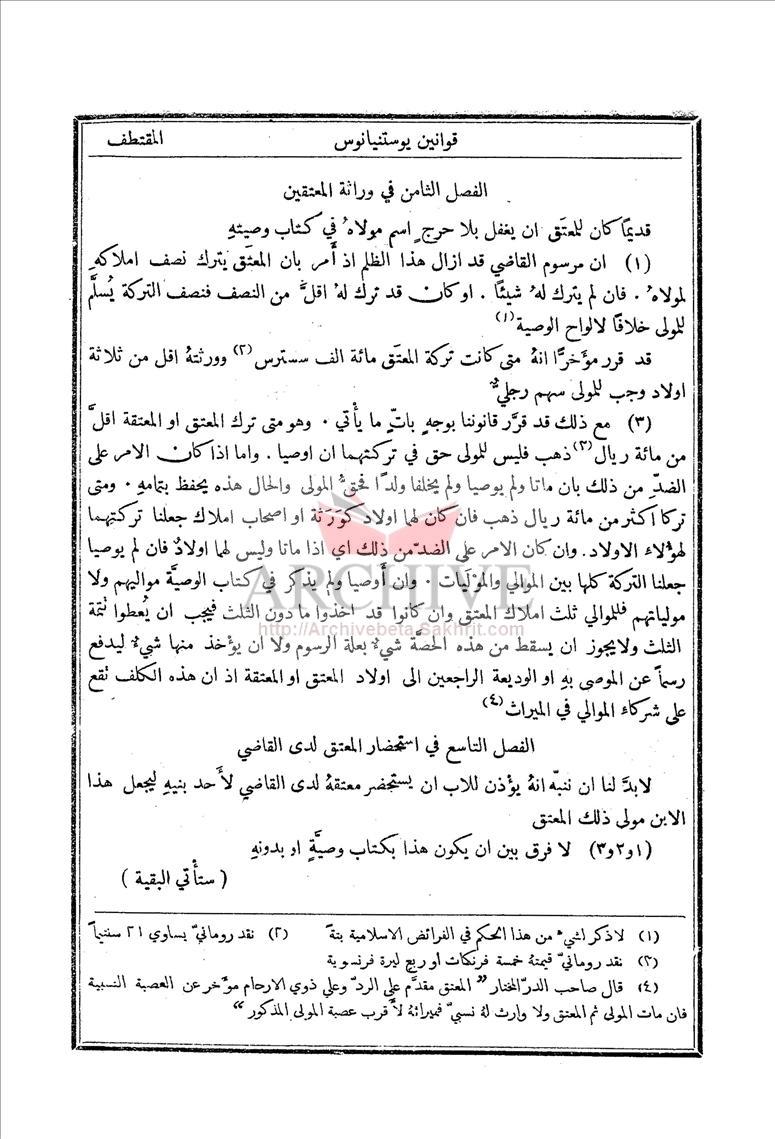 قوانين يوستنيانوس
المقتطف
الفصل الثامن في وراثة المعتقين
قديمًا كان للمعتَق ان يغفل بلا حرجٍ اسم مولاهُ في كتاب وصيتهِ
(١) ان مرسوم القاضي قد ازال هذا الظلم اذ أَمر بان المعتَق يترك نصف املاكهِ
لمولاهُ . فان لم يترك لهُ شيئًا . او كان قد ترك لهُ اقلَّ من النصف فنصف التركة يُسلَّم
للمولى خلافًا لالواح الوصية(١)
قد قرر مؤَخرًا انهُ متى كانت تركة المعتَق مائة الف سسترس(٢) وورثتهُ اقل من ثلاثة
اولاد وجب للمولى سهم رجليٌّ
(٣) مع ذلك قد قرَّر قانوننا بوجهٍ باتٍّ ما يأْتي . وهو متى ترك المعتق او المعتقة اقلَّ
من مائة ريال(٣) ذهب فليس للمولى حق في تركتهما ان اوصيا . واما اذا كان الامر على
الضدِّ من ذلك بان ماتا ولم يوصيا ولم يخلفا ولدًا فحقُّ المولى والحال هذه يحفظ بتمامهِ . ومتى
تركا اكثر من مائة ريال ذهب فان كان لهما اولاد كوَرَثة او اصحاب املاك جعلنا تركتيهما
لهؤلاء الاولاد. وان كان الامر على الضدّ من ذلك اي اذا ماتا وليس لهما اولادٌ فان لم يوصيا
جعلنا التركة كلها بين الموالي والمؤليات . وان أَوصيا ولم يذكر في كتاب الوصيَّة مواليهم ولا
مولياتهم فللموالي ثلث املاك المعتق وان كانوا قد اخذوا ما دون الثلث فيجب ان يُعطوا تتمة
الثلث ولايجوز ان يسقط من هذه الحصَّة شيءٌ بعلة الرسوم ولا ان يؤخذ منها شيءٌ ليدفع
رسماً عن الموصى بهِ او الوديعة الراجعين الى اولاد المعتق او المعتقة اذ ان هذه الكلف تقع
على شركاء الموالي في الميراث(٤)
الفصل التاسع في استحضار المعتق لدى القاضي
لابدَّ لنا ان ننبّه انهُ يؤذن للاب ان يستحضر معتقهُ لدى القاضي لأَحد بنيهِ ليجعل هذا
الابن مولى ذلك المعتق
(١و٢و٣) لا فرق بين ان يكون هذا بكتاب وصيَّةٍ او بدونهِ
( ستأْتي البقية )
(١) لاذكر لشيءٍ من هذا الحكم في الفرائض الاسلامية بتةً (٢) نقد رومانيّ يساوي ٢١ سنتيمًا
(٣) نقد رومانيّ قيمتهُ خمسة فرنكات او ربع ليرة فرنسوية
(٤) قال صاحب الدرّ المختار " المعتق مقدَّم على الردّ وعلى ذوي الارحام مؤخر عن العصبة النسبية
فان مات المولى ثم المعتق ولا وارث لهُ نسبيّ فميراثهُ لأَقرب عصبة المولى المذكور "
ARCHIVE
http://Archivebeta.Sakhrit.com